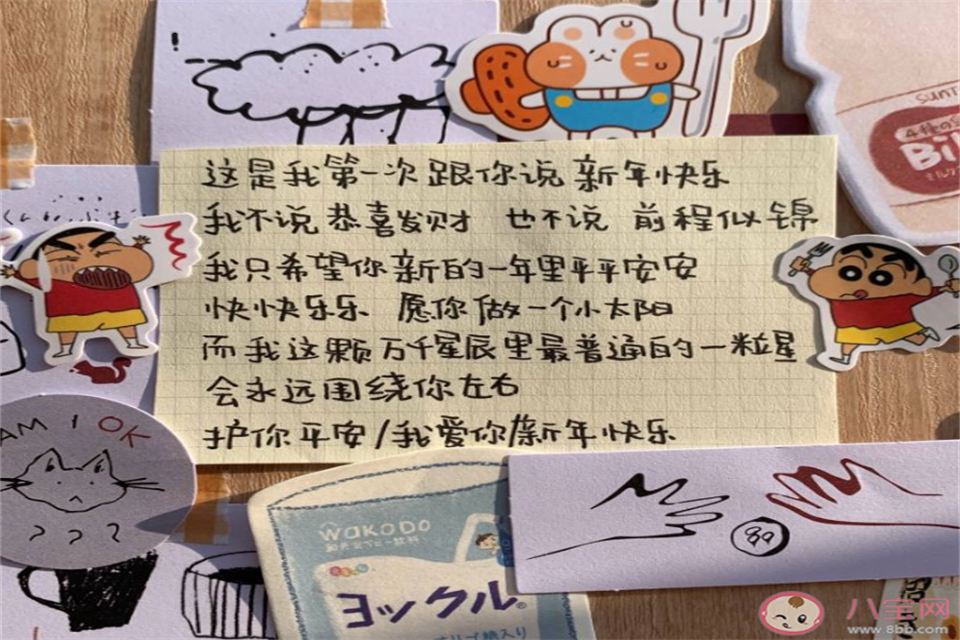 这是我第一次跟你说新年快乐
我不说恭喜发财 也不说 前程似锦
我只希望你新的一年里平平安安
快快乐乐 愿你做一个小太阳
而我这颗万千星辰里最普通的一粒星
会永远围绕你左右
护你平安/我爱你/新年快乐
AM I OK
? ? ?
wakodo
ヨックル
SUNT
Bil
八宝网
www.8bb.com